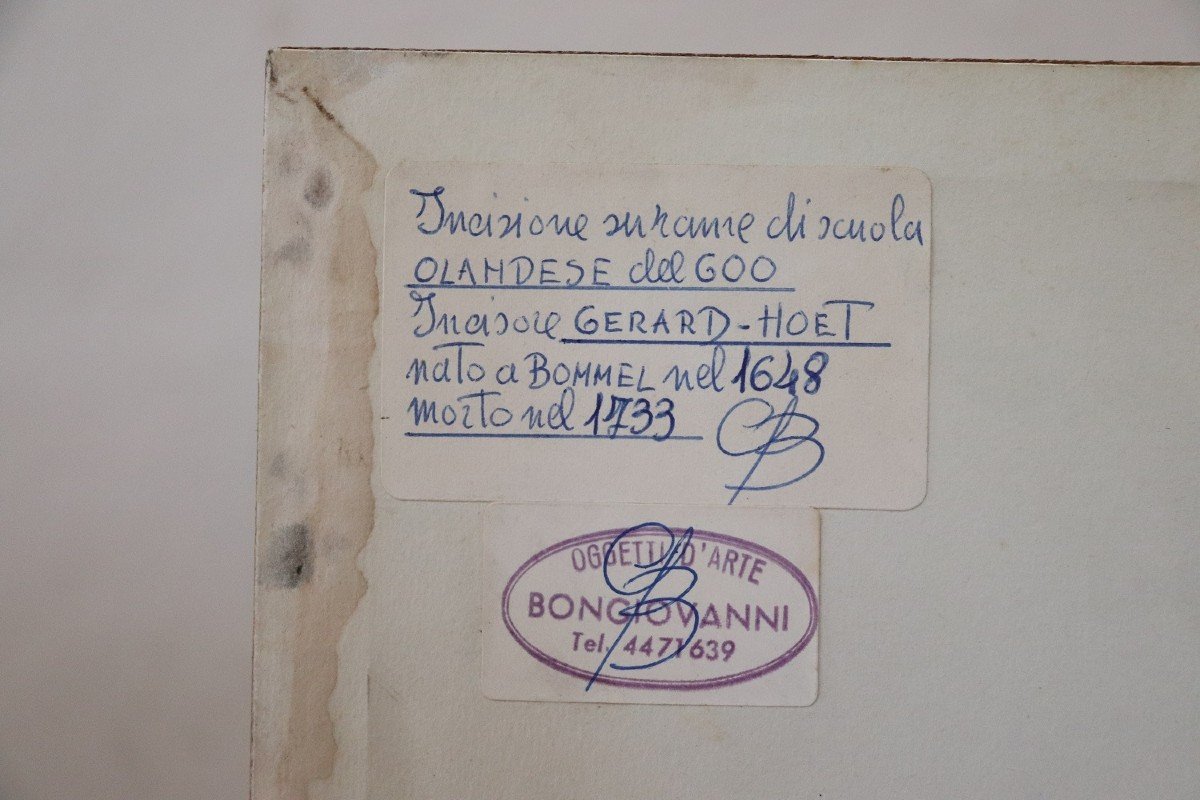 Incisione su rame di scuola
OLANDESE del 600
Incisore GERARD-HOET
nato a BOMMEL nel 1648
morto nel 1733
OGGETTI D'ARTE
BONGIOVANNI
Tel. 4471639